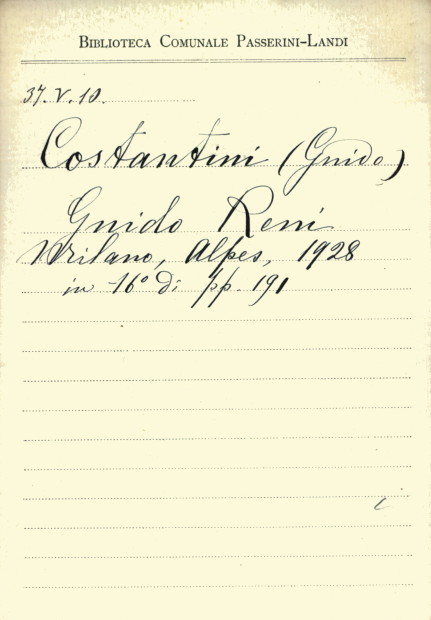 BIBLIOTECA COMUNALE PASSERINI-LANDI
37.V.10.
Costantini (Guido)
Guido Reni
Milano, Alpes, 1928
in 16° di pp. 191